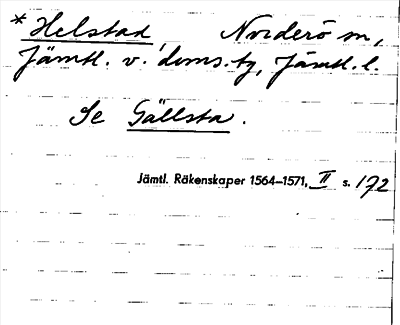 * Helstad Norderö sn,
Jämtl. v. doms. tg, Jämtl. l.
Se Gällsta.
Jämtl. Räkenskaper 1564–1571, II s. 172